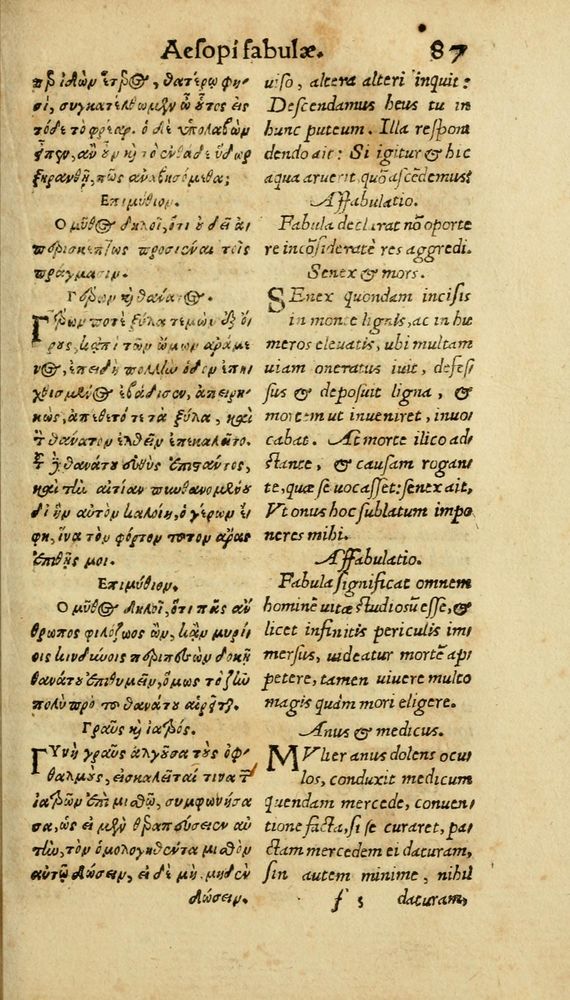 Aesopi fabulæ. 87
πρ ἰδὼν ἑτέρῳ, θατέρῳ φη-
σὶ, συγκατέλθωμεν ὦ οὗτος εἰς
τόδε τὸ φρέαρ. ὁ δὲ ὑπολαβὼν
εἶπεν, ἂν οὖν καὶ τὸ ἐνθάδε ὕδωρ
ξηρανθῇ, πῶς ἀναβησόμεθα;
Επιμύθιον.
Ο μῦθος δηλοῖ, ὅτι οὐ δεῖ ἀ-
περισκέπτως προσιέναι τοῖς
πράγμασιν.
Γέρων καὶ θάνατος.
Γέρων ποτὲ ξύλα τεμὼν ἐξ ὄ-
ρους, κἀπὶ τῶν ὤμων ἀράμε-
νος, ἐπειδὴ πολλὴν ὁδὸν ἐπη-
χθισμένος ἐβάδισεν, ἀπειρη-
κὼς, ἀπέθετό τε τὰ ξύλα, καὶ
τὸν θάνατον ἐλθεῖν ἐπεκαλεῖτο.
τοῦ δὲ θανάτου εὐθὺς ἐπιστάντος,
καὶ τὴν αἰτίαν πυνθανομένου
δι' ἣν αὐτὸν καλοίη, ὁ γέρων ἔ-
φη, ἵνα τὸν φόρτον τοῦτον ἄρας
ἐπιθῇς μοι.
Επιμύθιον.
Ο μῦθος δηλοῖ, ὅτι πᾶς ἄν-
θρωπος φιλόζωος ὢν, κἂν μυρί-
οις κινδύνοις περιπεσὼν δοκῇ
θανάτου ἐπιθυμεῖν, ὅμως τὸ ζῆν
πολὺ πρὸ τοῦ θανάτου αἱρεῖται.
Γραῦς καὶ ἰατρός.
Γυνὴ γραῦς ἀλγοῦσα τοὺς ὀφ-
θαλμοὺς, εἰσκαλεῖταί τινα τῶν
ἰατρῶν ἐπὶ μισθῷ, συμφωνήσα-
σα, ὡς εἰ μὲν θεραπεύσειεν αὐ-
τὴν, τὸν ὁμολογηθέντα μισθὸν
αὐτῷ δώσειν, εἰ δὲ μὴ, μηδὲν
δώσειν.
uiso, altera alteri inquit:
Descendamus heus tu in
hunc puteum. Illa respon
dendo ait: Si igitur & hic
aqua aruerit quõ ascẽdemus?
Affabulatio.
Fabula declarat nõ oporte
re incõsideratè res aggredi.
Senex & mors.
SEnex quondam incisis
in monte lignis, ac in hu
meros eleuatis, ubi multam
uiam oneratus iuit, defes-
sus & deposuit ligna, &
mortem ut inueniret, inuo-
cabat. At morte ilico ad-
stante, & causam rogan-
te, quæ se uocasset: senex ait,
Vt onus hoc sublatum impo
neres mihi.
Affabulatio.
Fabula significat omnem
hominẽ uitæ studiosũ esse, &
licet infinitis periculis im-
mersus, uideatur mortẽ ap-
petere, tamen uiuere multo
magis quàm mori eligere.
Anus & medicus.
MVlier anus dolens ocu-
los, conduxit medicum
quendam mercede, conuen-
tione facta, si se curaret, pa-
ctam mercedem ei daturam,
sin autem minime, nihil
f 3 daturam,